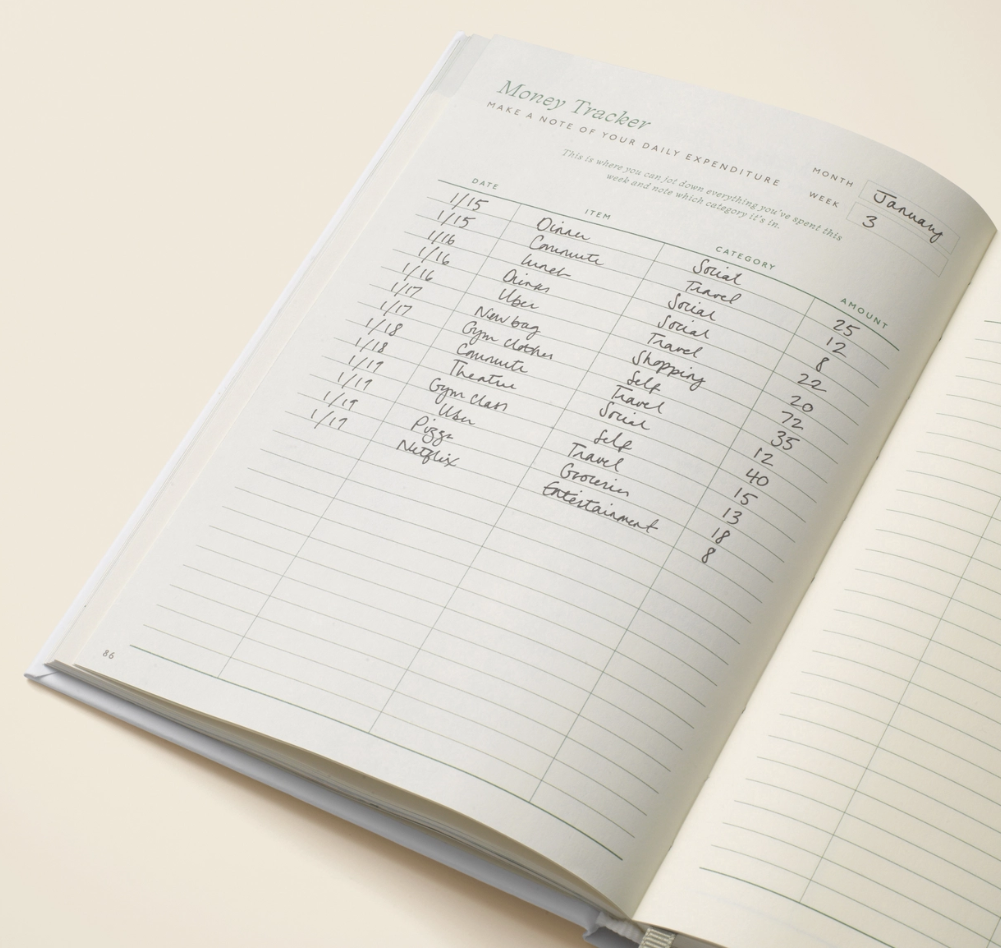 Money Tracker
MAKE A NOTE OF YOUR DAILY EXPENDITURE
This is where you can jot down everything you've spent this
week and note which category it's in.
MONTH January
WEEK 3
DATE ITEM CATEGORY AMOUNT
1/15 Dinner Social 25
1/15 Commute Travel 12
1/16 Lunch Social 8
1/16 Drinks Social 22
1/16 Uber Travel 20
1/17 New bag Shopping 72
1/17 Gym clothes Self 35
1/18 Commute Travel 12
1/18 Theatre Social 40
1/19 Gym class Self 15
1/19 Uber Travel 13
1/19 Pizza Groceries 18
1/19 Netflix Entertainment 8
86